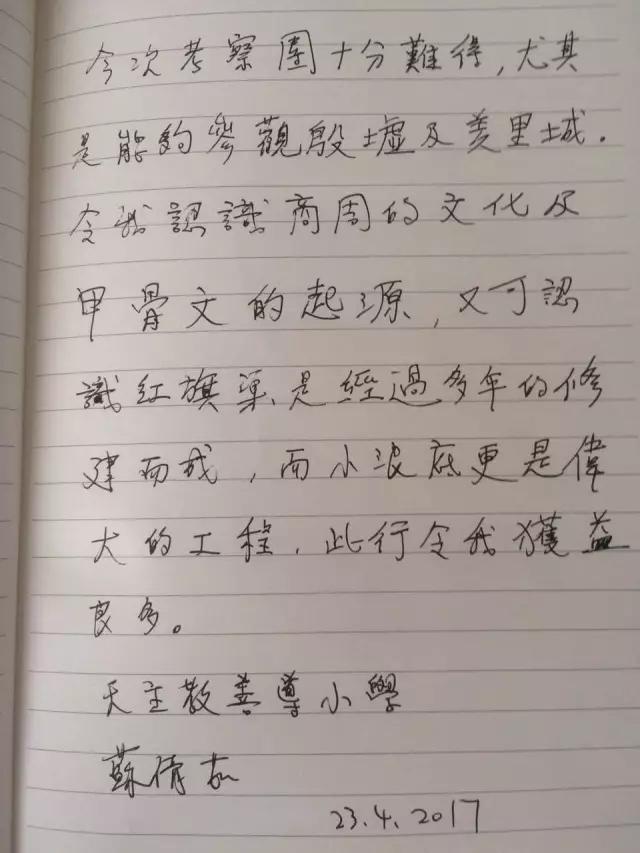 今次考察團十分難得，尤其
是能夠參觀殷墟及羑里城．
令我認識商周的文化及
甲骨文的起源，又可認
識紅旗渠是經過多年的修
建而成，而小浪底更是偉
大的工程．此行令我獲益
良多。
天主教善導小學
蘇倩
23.4.2017